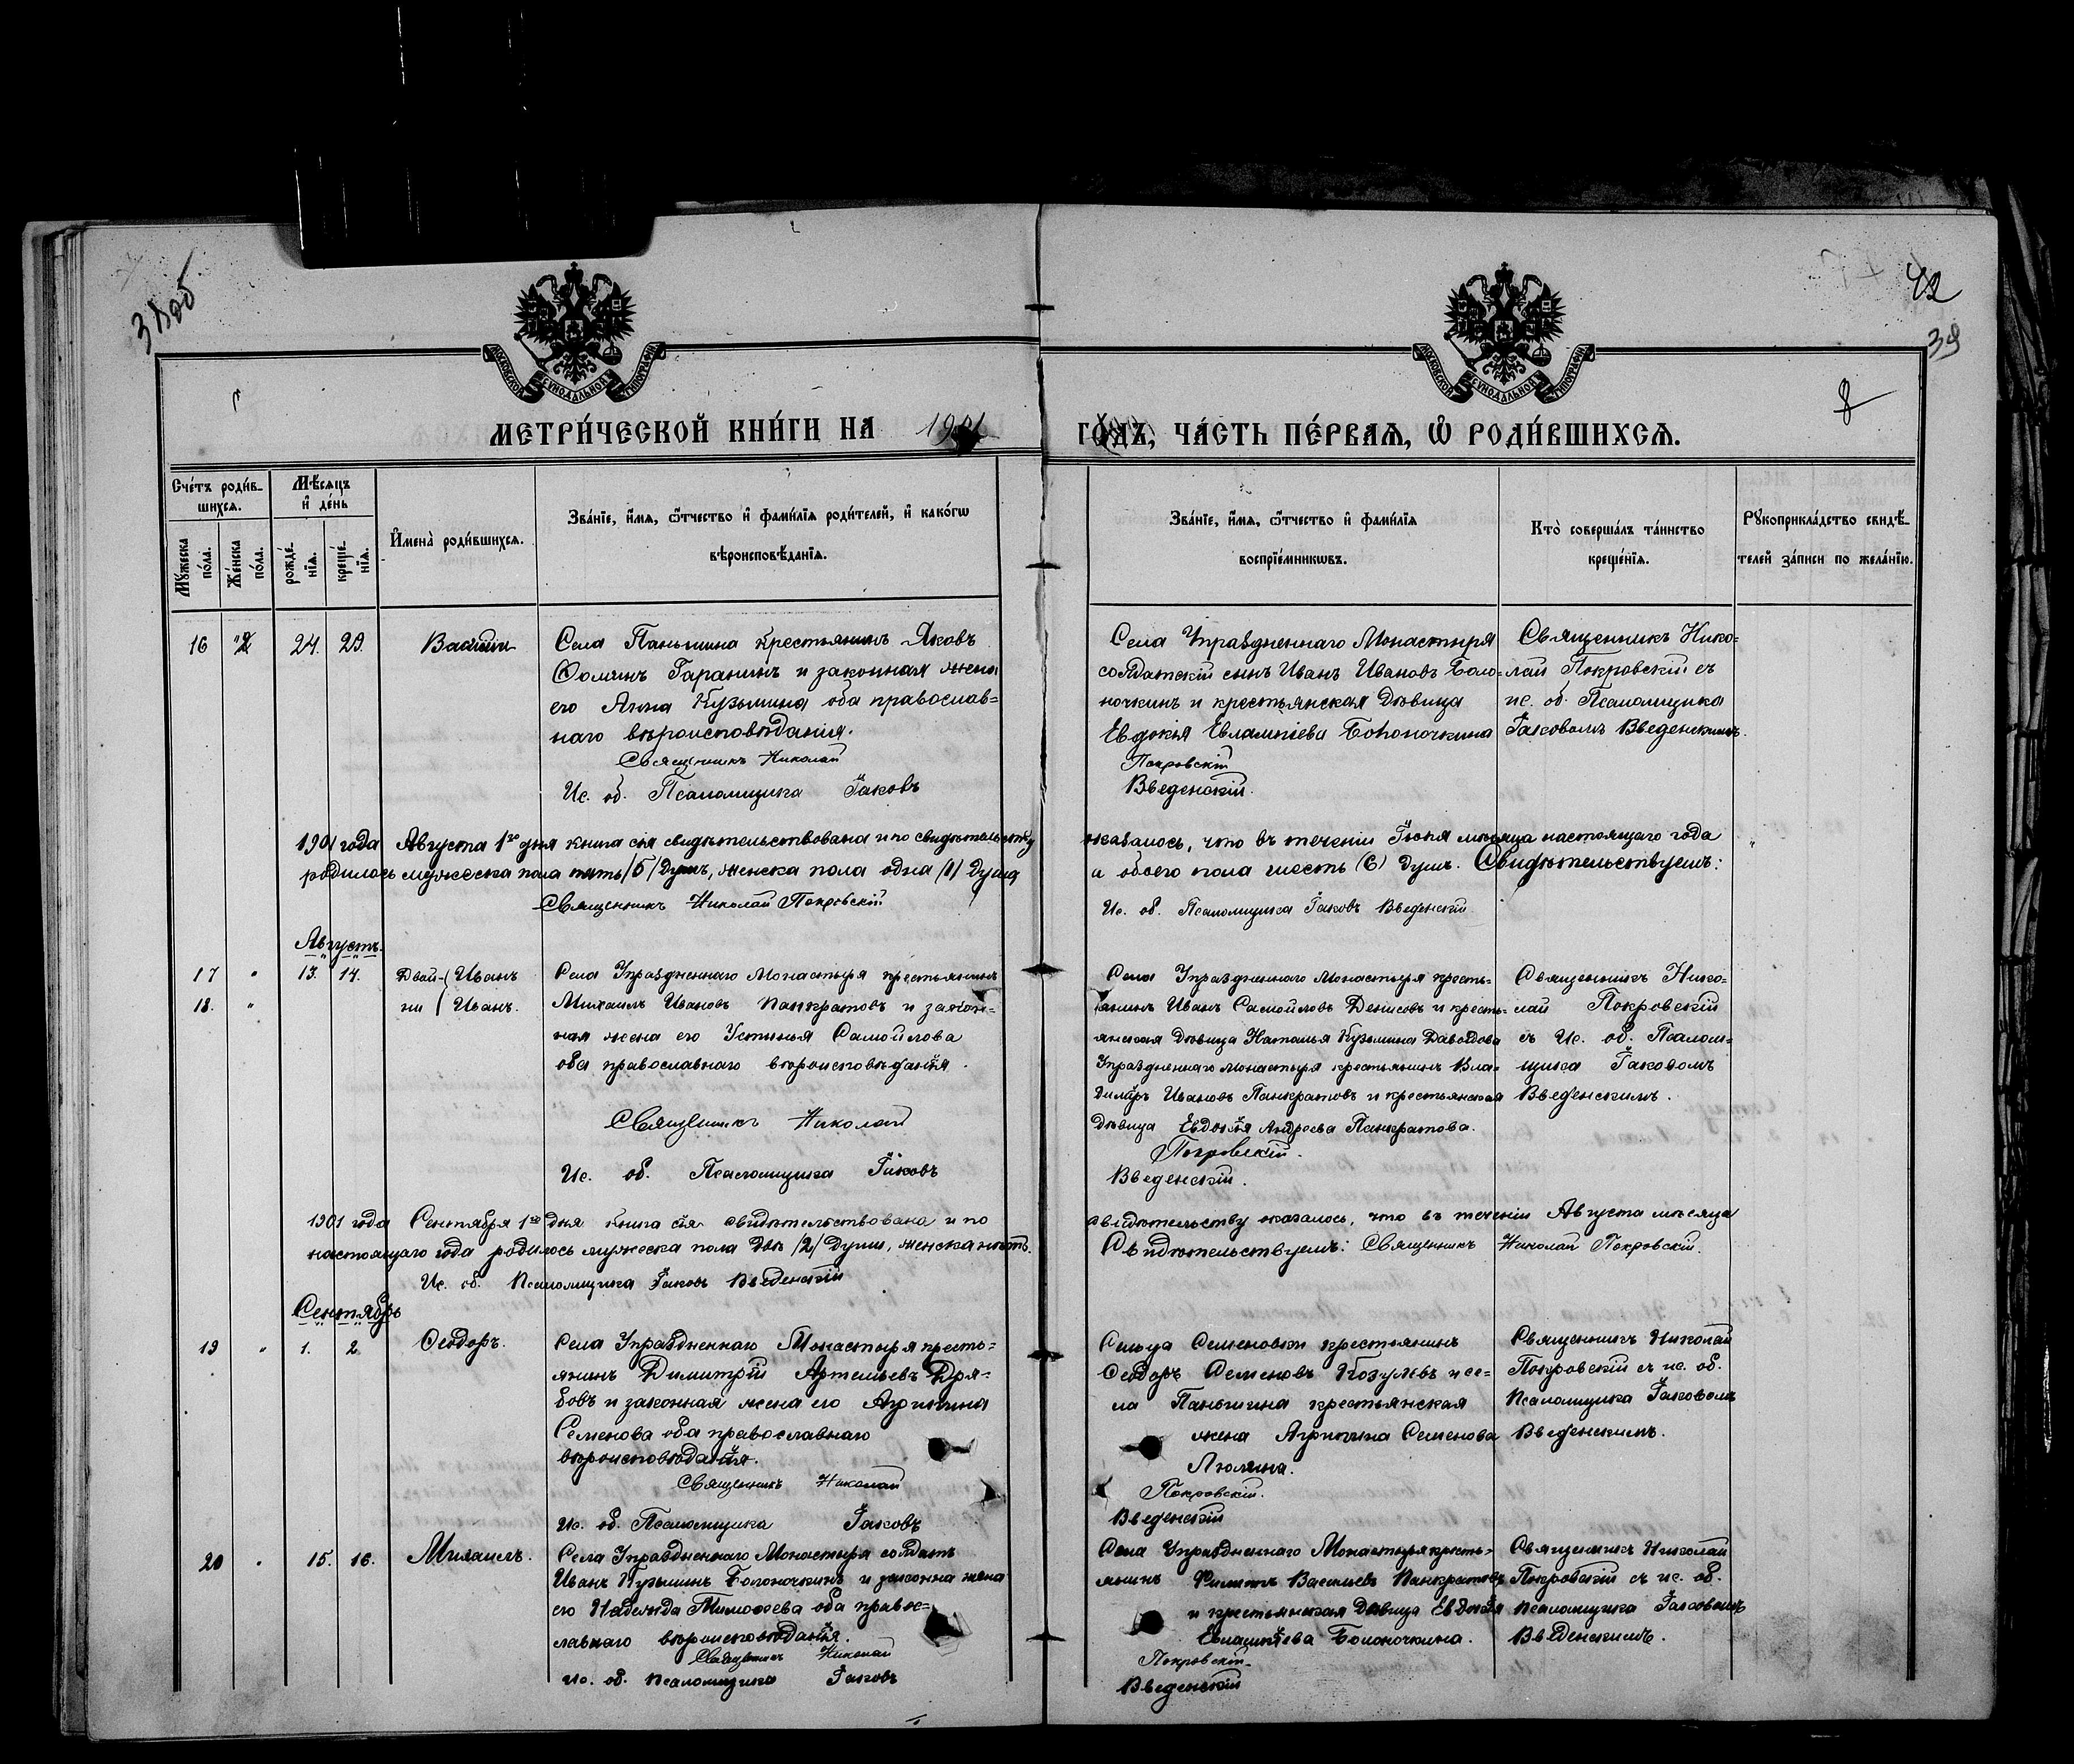 38об
42
39
8
МОСКОВСКОЙ СѴНОДАЛЬНОЙ ТИПОГРАФІИ
МОСКОВСКОЙ СѴНОДАЛЬНОЙ ТИПОГРАФІИ
МЕТРИ́ЧЕСКОЙ КНИ́ГИ НА 1901 ГО́ДЪ, ЧА́СТЬ ПЕ́РВАѦ, Ѡ РОДИ́ВШИХСѦ.
Сче́тъ роди́вшихсѧ.
Мꙋ́жеска по́ла.
Же́нска по́ла.
Мѣ́сѧцъ и҆ де́нь
рожде́нїѧ.
креще́нїѧ.
И҆мена̀ роди́вшихсѧ.
Зва́нїе, и҆́мѧ, ѻ҆́тчество и҆ фами́лїѧ роди́телей, и҆ како́гѡ
вѣроисповѣ́данїѧ.
Зва́нїе, и҆́мѧ, ѻ҆́тчество и҆ фами́лїѧ
воспрїе́мникѡвъ.
Кто̀ соверша́лъ та́инство
креще́нїѧ.
Рꙋкоприкла́дство свидѣ́-
телей за́писи по жела́нїю.
16 24. 29. Василій
Села Паньшина крестьянинъ Яковъ
Ѳоминъ Гаранинъ и законная жена
его Анна Кузьмина оба православ=
наго вѣроисповѣданія.
Священникъ Николай
Ис. об. Псаломщика Іаковъ
Села Упраздненнаго Монастыря
солдатскій сынъ Иванъ Ивановъ Боло=
ночкинъ и крестьянская дѣвица
Евдокія Евлампіева Болоночкина
Покровскій
Введенскій.
Священникъ Нико=
лай Покровскій съ
ис. об. Псаломщика
Іаковомъ Введенскимъ.
1901 года Августа 1го дня книга сія свидѣтельствована и по свидѣтельству оказалось, что въ теченіи Іюля мѣсяца настоящаго года
родилось мужеска пола пять /5/ душъ, женска пола одна /1/ душа а обоего пола шесть (6) душъ. Свидѣтельствуемъ:
Священникъ Николай Покровскій
Ис. об. Псаломщика Іаковъ Введенскій
Августъ.
17 " 13. 14. Двой- Иванъ
18. " ни Иванъ.
Села Упраздненнаго Монастыря крестьянинъ
Михаилъ Ивановъ Панкратовъ и закон=
ная жена его Устинья Самойлова
оба православнаго вѣроисповѣданія.
Священникъ Николай
Ис. об. Псаломщика Іаковъ
Села Упраздненнаго Монастыря кресть=
янинъ Иванъ Самойловъ Денисовъ и кресть=
янская дѣвица Наталья Кузьмина Давыдова
Упраздненнаго Монастыря крестьянинъ Вла=
диміръ Ивановъ Панкратовъ и крестьянская
дѣвица Евдокія Андреева Панкратова.
Покровскій.
Введенскій.
Священникъ Нико=
лай Покровскій
съ Ис. об. Псалом=
щика Іаковомъ
Введенскимъ.
1901 года Сентября 1го дня книга сія свидѣтельствована и по свидѣтельству оказалось, что въ теченіи Августа мѣсяца
настоящаго года родилось мужеска пола двѣ /2/ души, женска нѣтъ. Свидѣтельствуемъ: Священникъ Николай Покровскій.
Ис. об. Псаломщика Іаковъ Введенскій
Сентябрь
19 " 1. 2. Ѳеодоръ.
Села Упраздненнаго Монастыря кресть=
янинъ Димитрій Артемьевъ Дря=
бовъ и законная жена его Агрипина
Семенова оба православнаго
вѣроисповѣданія.
Священникъ Николай
Ис. об. Псаломщика Іаковъ
Сельца Семеновки крестьянинъ
Ѳеодоръ Семеновъ Козулевъ и се=
ла Паньшина крестьянская
жена Агрипина Семенова
Люлина.
Покровскій.
Введенскій
Священникъ Николай
Покровскій съ ис. об.
Псаломщика Іаковомъ
Введенскимъ.
20 " 15. 16. Михаилъ.
Села Упраздненнаго Монастыря солдатъ
Иванъ Кузьминъ Болоночкинъ и законна жена
его Надежда Тимоѳеева оба правос=
лавнаго вѣроисповѣданія.
Священникъ Николай
Ис. об. Псаломщика Іаковъ
Села Упраздненнаго Монастыря кресть=
янинъ Филиппъ Васильевъ Панкратовъ
и крестьянская дѣвица Евдокія
Евлампіева Болоночкина.
Покровскій
Введенскій
Священникъ Николай
Покровскій съ ис. об.
псаломщика Іаковомъ
Введенскимъ.